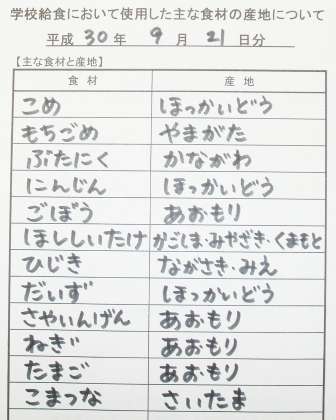 学校給食において使用した主な食材の産地について
平成 30 年 9 月 21 日分
【主な食材と産地】
食材 産地
こめ ほっかいどう
もちごめ やまがた
ぶたにく かながわ
にんじん ほっかいどう
ごぼう あおもり
ほししいたけ かごしま・みやざき・くまもと
ひじき ながさき・みえ
だいず ほっかいどう
さやいんげん あおもり
ねぎ あおもり
たまご あおもり
こまつな さいたま